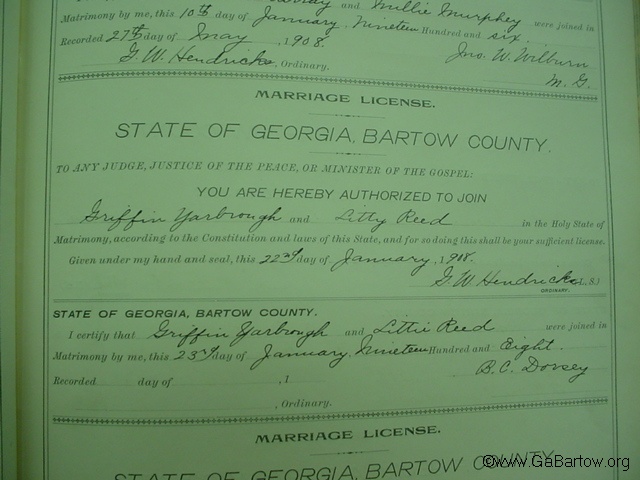 and Millie Murphey were joined in
Matrimony by me, this 10th day of January, Nineteen Hundred and six.
Recorded 27th day of May, 1908. Jno. W. Wilburn
G. W. Hendricks, Ordinary. M. G.
MARRIAGE LICENSE.
STATE OF GEORGIA, BARTOW COUNTY.
TO ANY JUDGE, JUSTICE OF THE PEACE, OR MINISTER OF THE GOSPEL:
YOU ARE HEREBY AUTHORIZED TO JOIN
Griffin Yarbrough and Litty Reed in the Holy State of
Matrimony, according to the Constitution and laws of this State, and for so doing this shall be your sufficient license.
Given under my hand and seal, this 22nd day of January, 1908.
G. W. Hendricks (L. S.)
ORDINARY.
STATE OF GEORGIA, BARTOW COUNTY.
I certify that Griffin Yarbrough and Littie Reed were joined in
Matrimony by me, this 23rd day of January, Nineteen Hundred and Eight.
B. C. Dorsey
Recorded day of , 1
, Ordinary.
MARRIAGE LICENSE.
STATE OF GEORGIA, BARTOW COUNTY.
©www.GaBartow.org